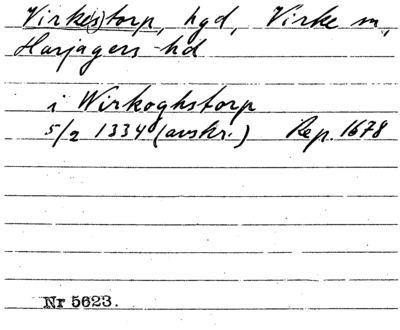 Virke(s)torp, hgd, Virke sn,
Harjagers hd
i Wirkoghstorp
5/2 1334 (avskr.) Rep. 1678
Nr 5623.